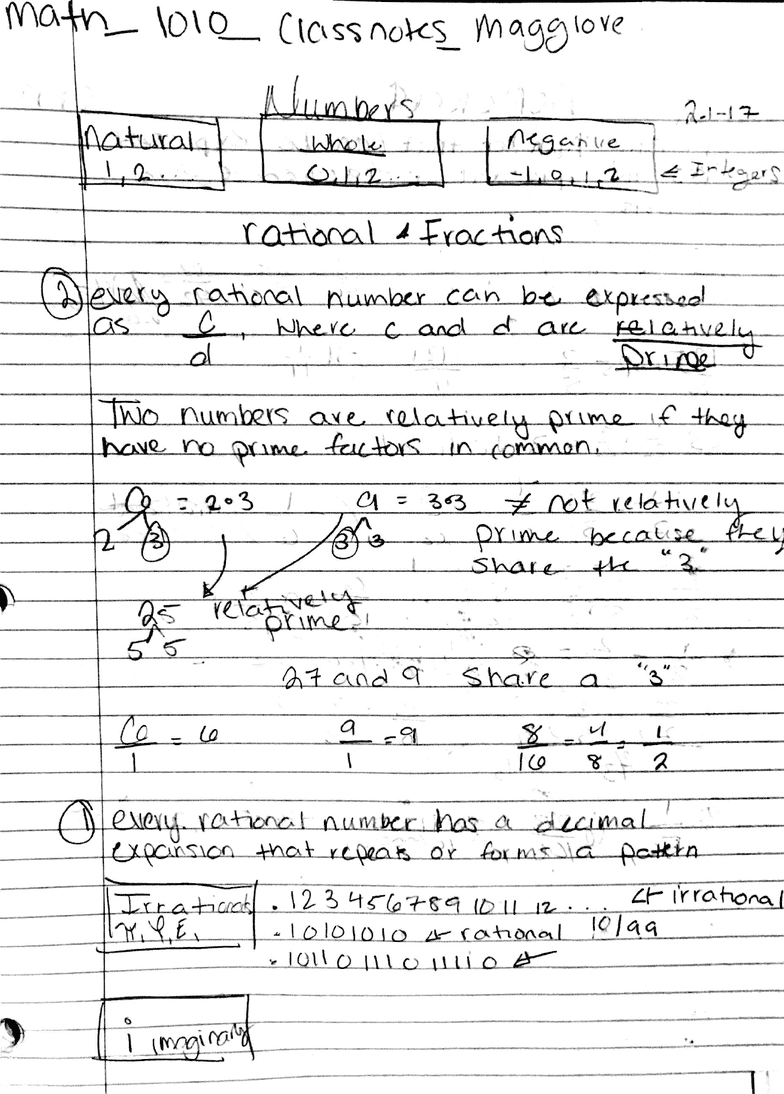 Math_ 1010_ Classnotes_ Magglove
Numbers
2-1-17
Natural
1, 2...
Whole
0, 1, 2...
Negative
-1, 0, 1, 2
Integers
rational & Fractions
② every rational number can be expressed
as c/d, where c and d are relatively
prime
Two numbers are relatively prime if they
have no prime factors in common.
6 = 2·3 9 = 3·3 ≠ not relatively
2 3 3 3 prime because they
share the "3"
25 relatively
5 5 prime
27 and 9 share a "3"
6/1 = 6 9/1 = 9 8/16 = 4/8 = 1/2
① every rational number has a decimal
expansion that repeats or forms a pattern
Irrational
π, φ, E,
.123456789 10 11 12... irrational
.10101010 rational 10/99
.10110111011110
i imaginary